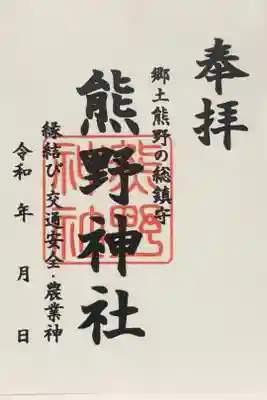 奉拝
郷土熊野の総鎮守
熊野神社
熊野
神社
縁結び・交通安全・農業神
令和 年 月 日